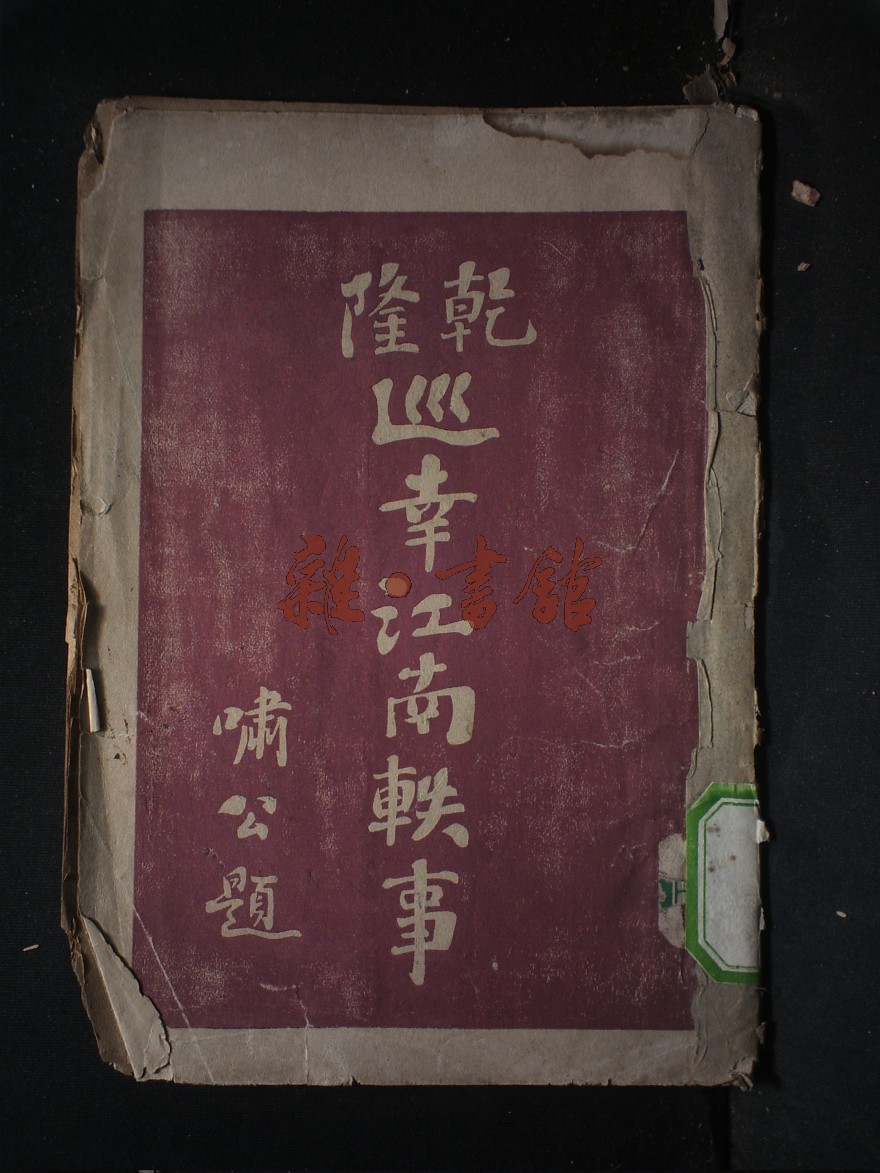 乾隆
巡幸江南軼事
嘯公題
雜·書館